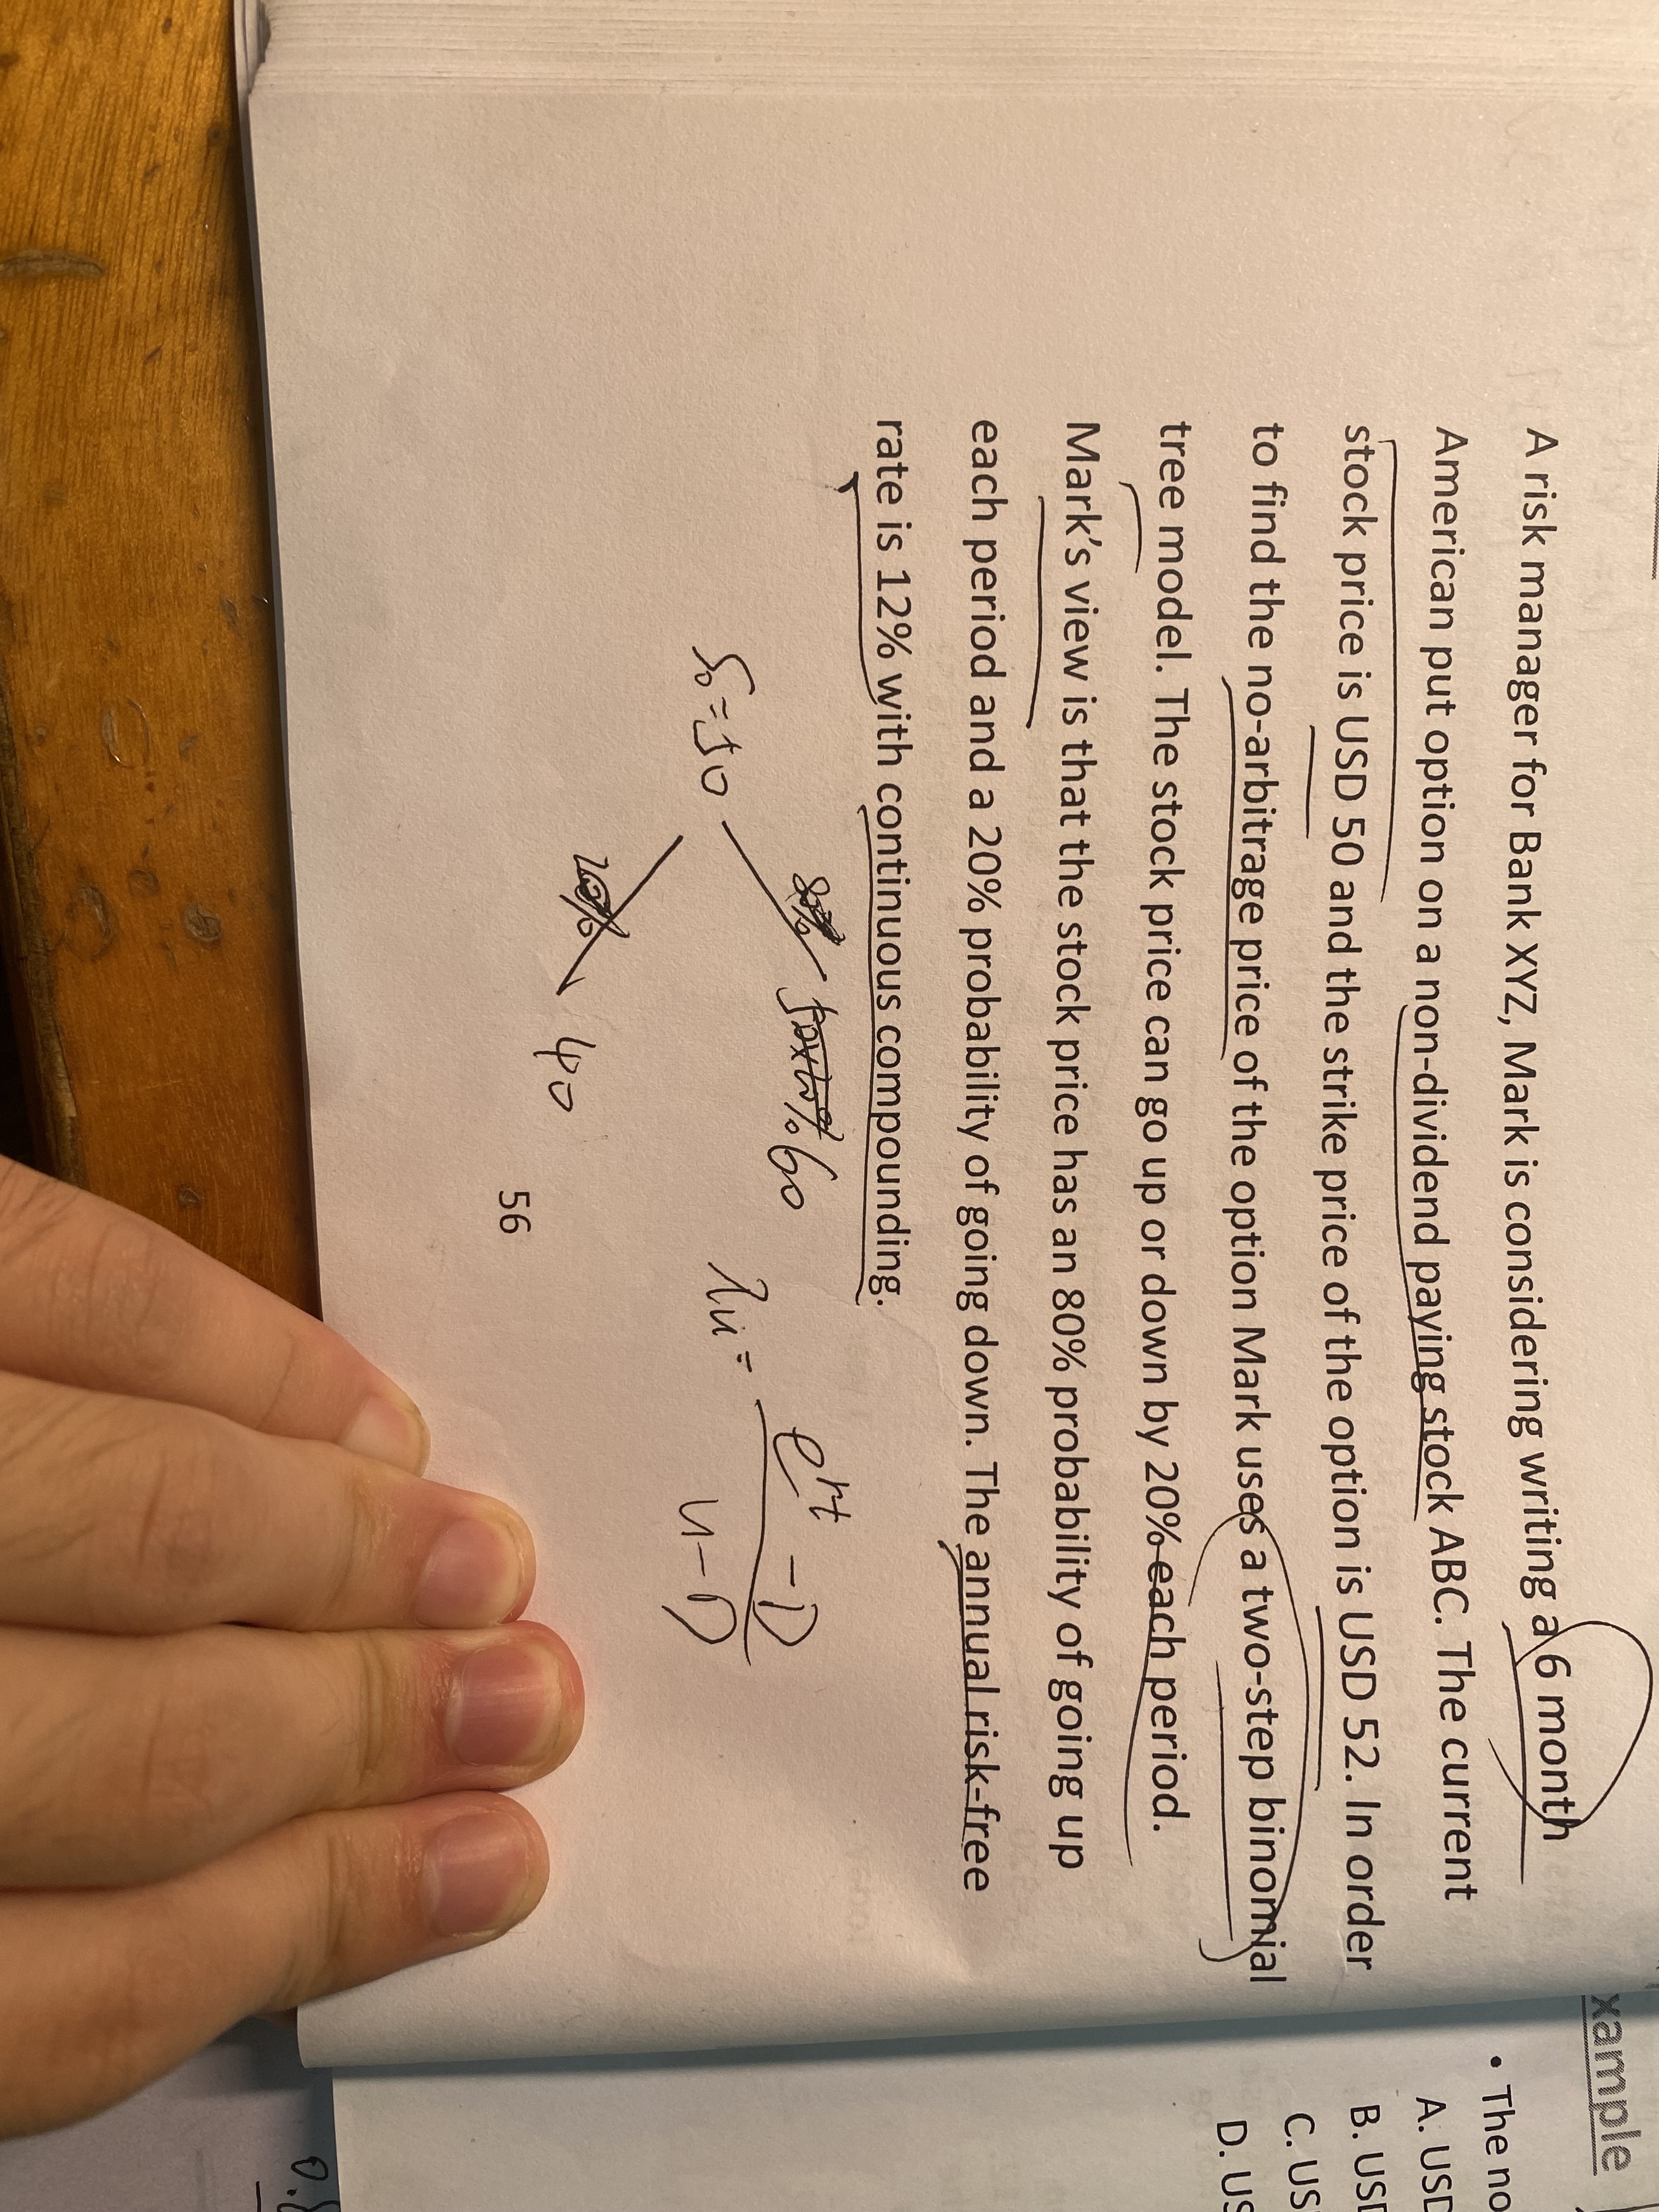 A risk manager for Bank XYZ, Mark is considering writing a 6 month
American put option on a non-dividend paying stock ABC. The current
stock price is USD 50 and the strike price of the option is USD 52. In order
to find the no-arbitrage price of the option Mark uses a two-step binomial
tree model. The stock price can go up or down by 20% each period.
Mark's view is that the stock price has an 80% probability of going up
each period and a 20% probability of going down. The annual risk-free
rate is 12% with continuous compounding.
60
S₀=50
40
πu = (e^rt - D) / (u - D)
56
xample
• The no
A. USD
B. USD
C. US
D. US